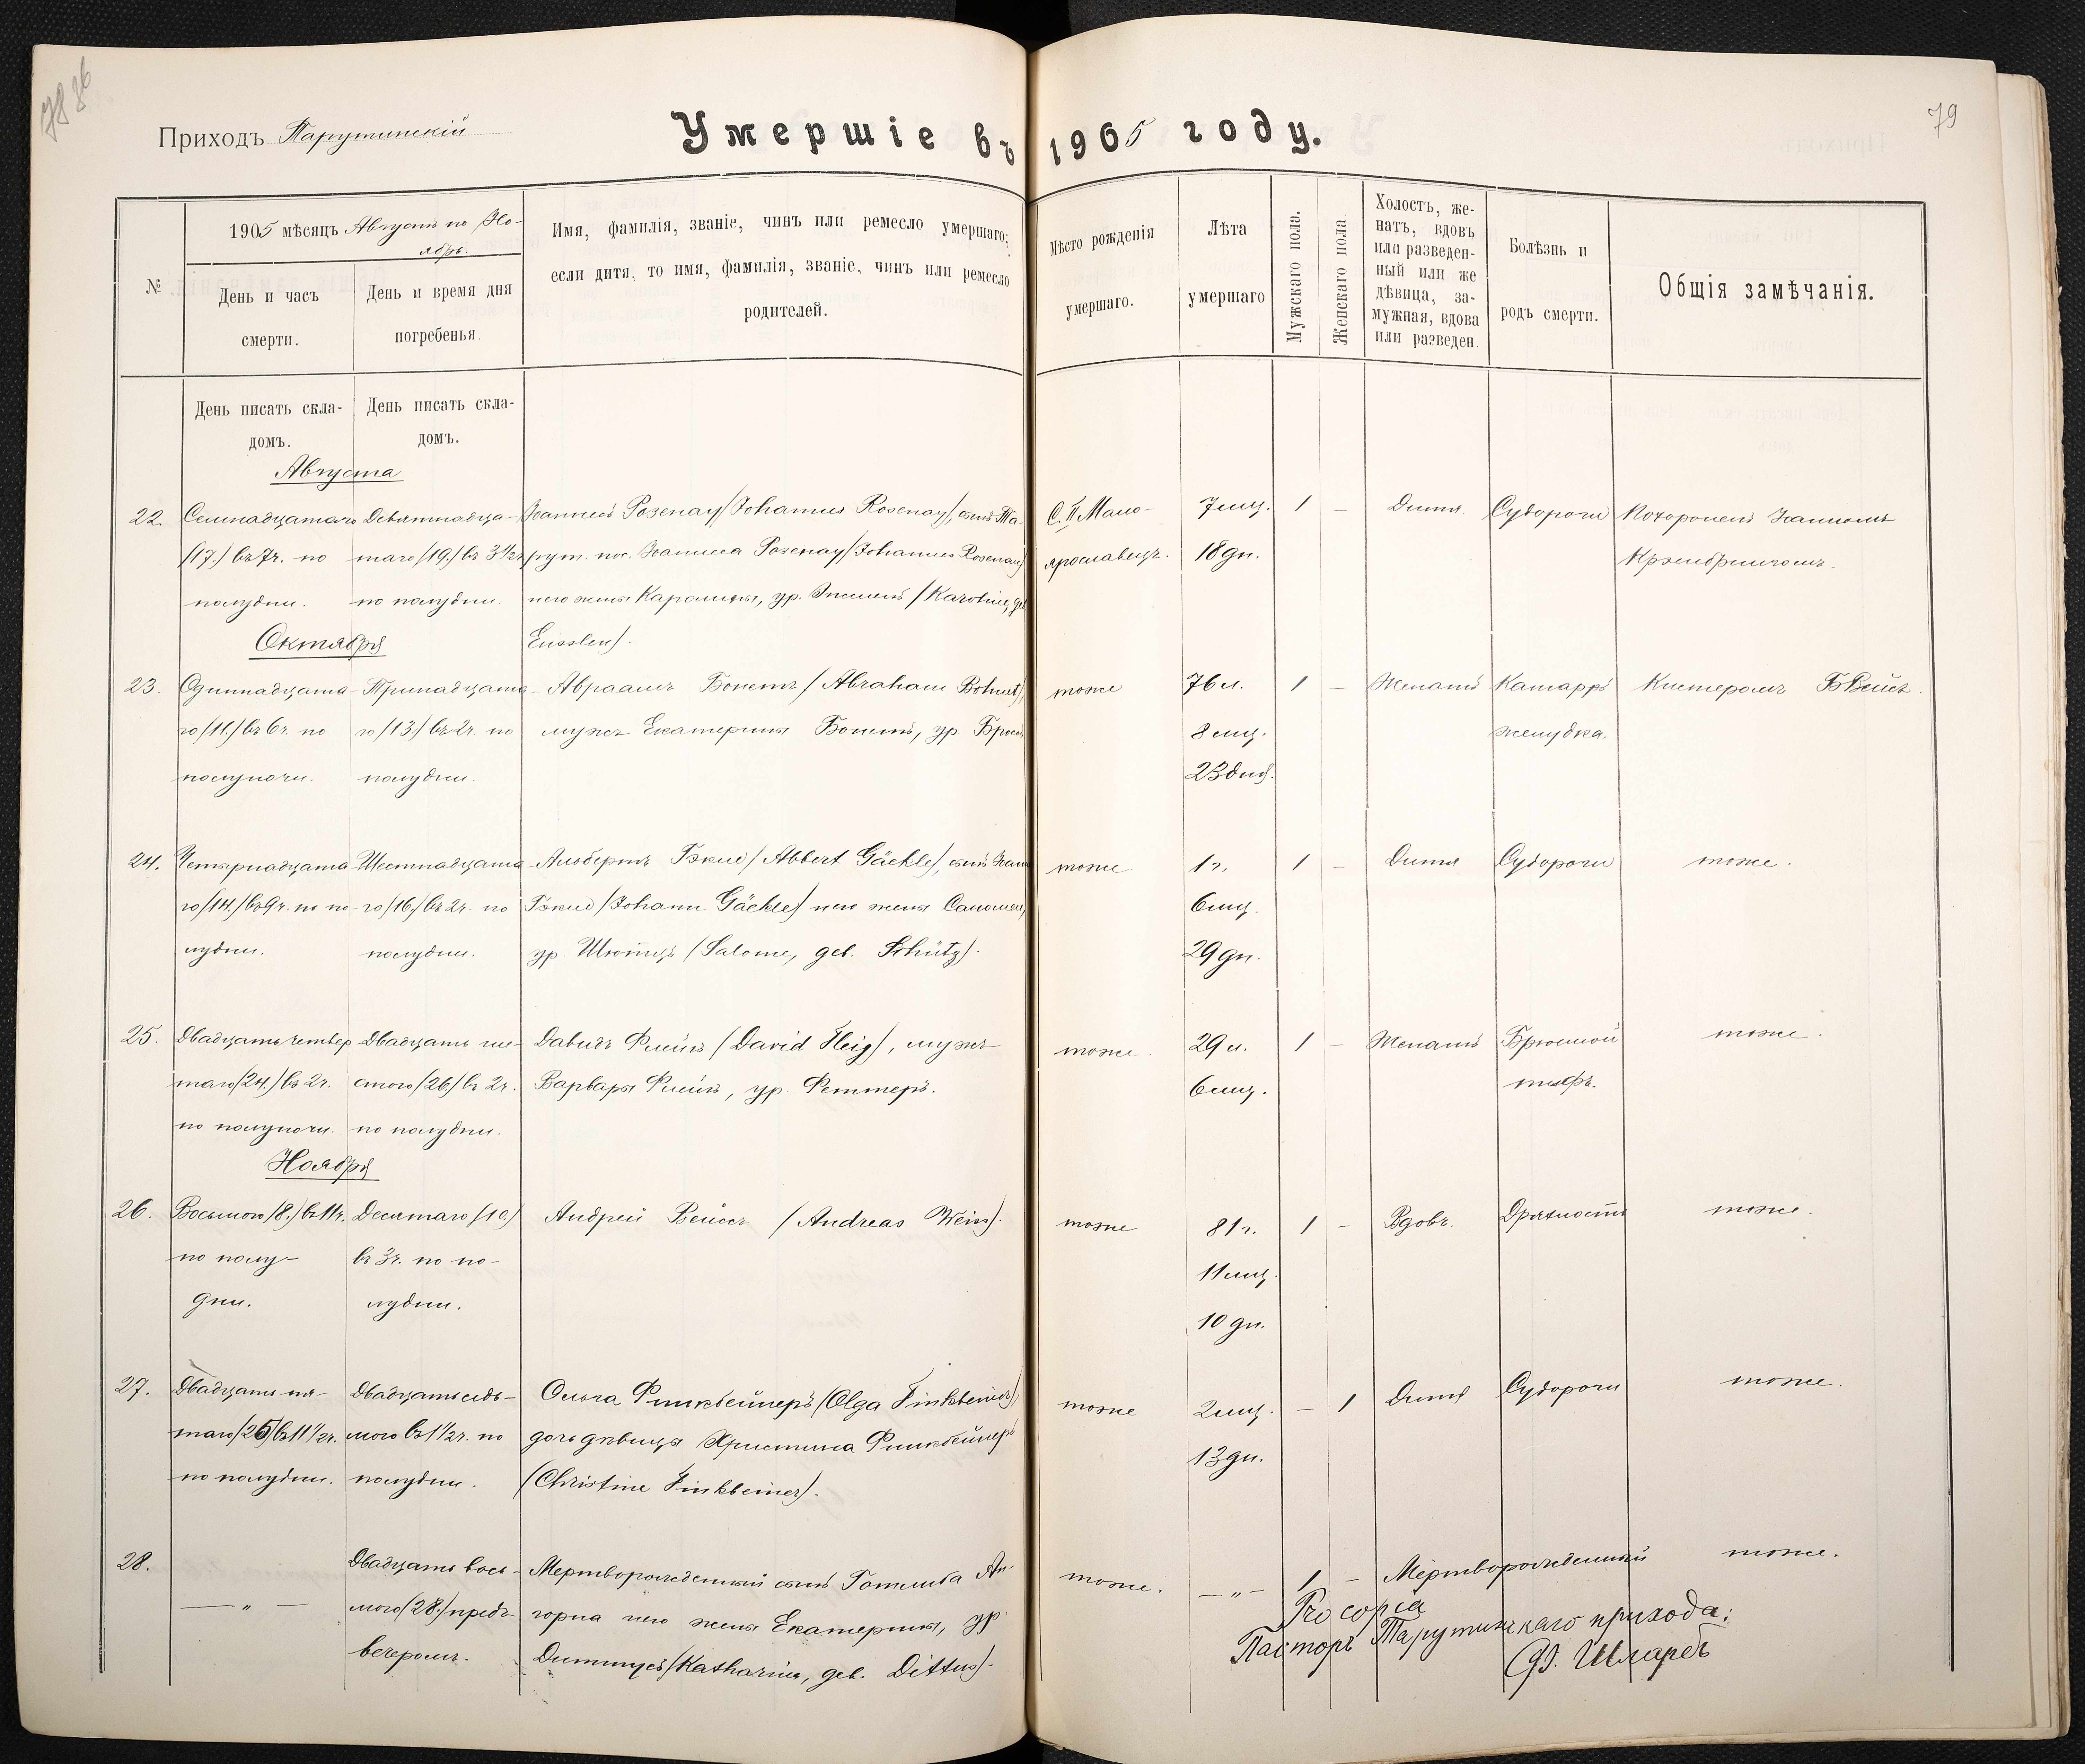 78 86
79
Приходъ Тарутинскій
Умершіе въ 1905 году.
№
1905 мѣсяцъ Августъ по Но-
ябрь.
День и часъ
смерти.
День и время дня
погребенья.
Имя, фамилія, званіе, чинъ или ремесло умершаго;
если дитя, то имя, фамилія, званіе, чинъ или ремесло
родителей.
Мѣсто рожденія
умершаго.
Лѣта
умершаго
Мужскаго пола.
Женскаго пола
Холостъ, же-
натъ, вдовъ
или разведен-
ный или же
дѣвица, за-
мужная, вдова
или разведен.
Болѣзнь и
родъ смерти.
Общія замѣчанія.
День писать скла-
домъ.
День писать скла-
домъ.
Августа
22.
Семнадцатаго
(17.) въ 7ч. по
полудни.
Девятнадца-
таго (19.) въ 3½ч
по полудни.
Іоаннесъ Розенау (Johannes Rosenau), сынъ Та-
рут. пос. Іоаннеса Розенау (Johannes Rosenau)
и его жены Каролины, ур. Энсленъ (Karoline, geb
Ensslen).
С. П. Мало-
ярославецъ.
7 мц.
18 дн.
1
–
Дитя
Судороги
Похороненъ Іоанномъ
Октября
23.
Одиннадцата-
го (11.) въ 6ч. по
полуночи.
Тринадцата-
го (13.) въ 2ч. по
полудни.
Авраамъ Бонетъ (Abraham Bohnet),
мужъ Екатерины Бонетъ, ур.
тоже
76 л.
8 мц.
23 дня.
1
–
Женатъ
Катарръ
желудка.
Кистеромъ Б. Вейсъ.
24.
Четырнадцата-
го (14.) въ 9ч. по по-
лудни.
Шестнадцата-
го (16.) въ 2ч. по
полудни.
Альбертъ Гэкле (Albert Gäckle), сынъ Іоан
Гэкле (Johann Gäckle) и его жены Саломеи,
ур. Шютцъ (Salome, geb. Schütz).
тоже.
1 г.
6 мц.
29 дн.
1
–
Дитя
Судороги
тоже.
25.
Двадцать четвер
таго (24.) въ 2ч.
по полуночи.
Двадцать ше-
стого (26.) въ 2ч.
по полудни.
Давидъ Флейгъ (David Fleig), мужъ
Варвары Флейгъ, ур. Феттеръ.
тоже.
29 л.
6 мц.
1
–
Женатъ
Брюшной
тифъ.
тоже.
Ноября
26.
Восьмого (8.) въ 11ч.
по полу-
дни.
Десятаго (10.)
въ 3ч. по по-
лудни.
Андрей Вейссъ (Andreas Weiss).
тоже
81 г.
11 мц.
10 дн.
1
–
Вдовъ.
Дряхлость
тоже.
27.
Двадцать пя-
таго (25) въ 11½ч.
по полудни.
Двадцатьседь-
мого въ 1½ч. по
полудни.
Ольга Финкбейнеръ (Olga Finkbeiner),
дочь дѣвицы Христина Финкбейнеръ
(Christine Finkbeiner).
тоже
2 мц.
13 дн.
–
1
Дитя
Судороги
тоже.
28.
— „ —
Двадцать вось-
мого (28.) предъ
вечеромъ.
Мертворожденный сынъ Готлиба Ан-
горна и его жены Екатерины, ур
Диттусъ (Katharina, geb. Dittus).
тоже.
— „ —
1
–
Мертворожденный
тоже.
Pro copia
Пасторъ Тарутинскаго прихода: